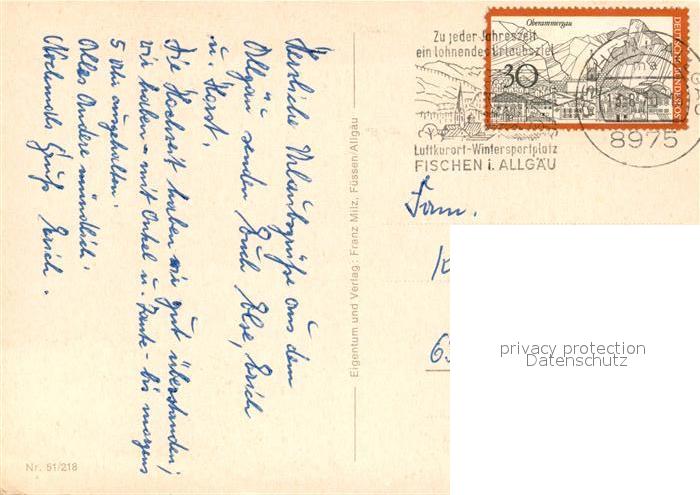 Zu jeder Jahreszeit
ein lohnendes Urlaubsziel
Luftkurort-Wintersportplatz
FISCHEN i. ALLGÄU
Oberammergau
30
DEUTSCHE BUNDESPOST
8975
Herzliche Urlaubsgrüße aus dem
Allgäu senden Euch Else, Erich
u. Horst.
Die Hochzeit haben wir gut überstanden;
wir haben - mit Onkel u. Tante - bis morgens
5 Uhr ausgehalten.
Alles Andere mündlich.
Nochmals Gruß Erich.
Eigentum und Verlag: Franz Milz, Füssen/Allgäu
Fam.
Nr. 51/218
privacy protection
Datenschutz